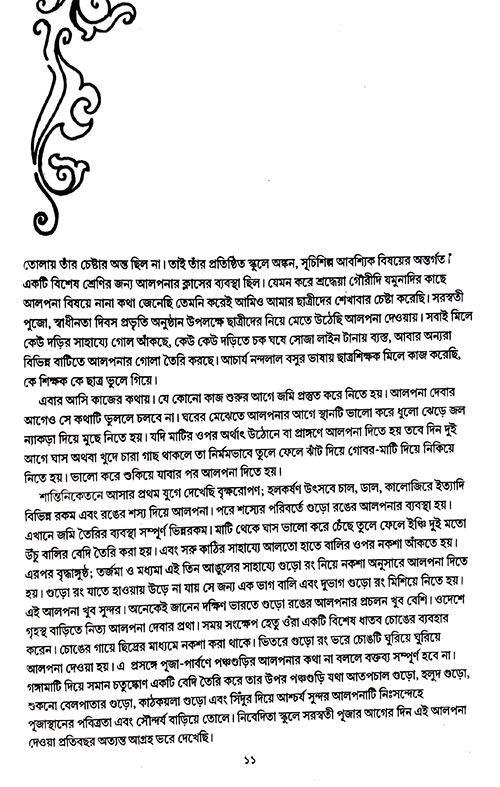 তোলায় তাঁর চেষ্টার অন্ত ছিল না। তাই তাঁর প্রতিষ্ঠিত স্কুলে অঙ্কন, সূচিশিল্প আবশ্যিক বিষয়ের অন্তর্গত।
একটি বিশেষ শ্রেণির জন্য আলপনার ক্লাসের ব্যবস্থা ছিল। যেমন করে শ্রদ্ধেয়া গৌরীদি যমুনাদির কাছে
আলপনা বিষয়ে নানা কথা জেনেছি তেমনি করেই আমিও আমার ছাত্রীদের শেখাবার চেষ্টা করেছি। সরস্বতী
পুজো, স্বাধীনতা দিবস প্রভৃতি অনুষ্ঠান উপলক্ষে ছাত্রীদের নিয়ে মেতে উঠেছি আলপনা দেওয়ায়। সবাই মিলে
কেউ দড়ির সাহায্যে গোল আঁকছে, কেউ কেউ দড়িতে চক ঘষে সোজা লাইন টানায় ব্যস্ত, আবার অন্যরা
বিভিন্ন বাটিতে আলপনার গোলা তৈরি করছে। আচার্য নন্দলাল বসুর ভাষায় ছাত্রশিক্ষক মিলে কাজ করেছি,
কে শিক্ষক কে ছাত্র ভুলে গিয়ে।
এবার আসি কাজের কথায়। যে কোনো কাজ শুরুর আগে জমি প্রস্তুত করে নিতে হয়। আলপনা দেবার
আগেও সে কথাটি ভুললে চলবে না। ঘরের মেঝেতে আলপনার আগে স্থানটি ভালো করে ধুলো ঝেড়ে জল
ন্যাকড়া দিয়ে মুছে নিতে হয়। যদি মাটির ওপর অর্থাৎ উঠোনে বা প্রাঙ্গণে আলপনা দিতে হয় তবে দিন দুই
আগে ঘাস অথবা খুদে চারা গাছ থাকলে তা নির্মমভাবে তুলে ফেলে ঝাঁট দিয়ে গোবর-মাটি দিয়ে নিকিয়ে
নিতে হয়। ভালো করে শুকিয়ে যাবার পর আলপনা দিতে হয়।
শান্তিনিকেতনে আসার প্রথম যুগে দেখেছি বৃক্ষরোপণ; হলকর্ষণ উৎসবে চাল, ডাল, কালোজিরে ইত্যাদি
বিভিন্ন রকম এবং রঙের শস্য দিয়ে আলপনা। পরে শস্যের পরিবর্তে গুড়ো রঙের আলপনার ব্যবস্থা হয়।
এখানে জমি তৈরির ব্যবস্থা সম্পূর্ণ ভিন্নরকম। মাটি থেকে ঘাস ভালো করে চেঁছে তুলে ফেলে ইঞ্চি দুই মতো
উঁচু বালির বেদি তৈরি করা হয়। এবং সরু কাঠির সাহায্যে আলতো হাতে বালির ওপর নকশা আঁকতে হয়।
এরপর বৃদ্ধাঙ্গুষ্ঠ; তর্জমা ও মধ্যমা এই তিন আঙুলের সাহায্যে গুড়ো রং নিয়ে নকশা অনুসারে আলপনা দিতে
হয়। গুড়ো রং যাতে হাওয়ায় উড়ে না যায় সে জন্য এক ভাগ বালি এবং দুভাগ গুড়ো রং মিশিয়ে নিতে হয়।
এই আলপনা খুব সুন্দর। অনেকেই জানেন দক্ষিণ ভারতে গুড়ো রঙের আলপনার প্রচলন খুব বেশি। ওদেশে
গৃহস্থ বাড়িতে নিত্য আলপনা দেবার প্রথা। সময় সংক্ষেপ হেতু ওঁরা একটি বিশেষ ধাতব চোঙের ব্যবহার
করেন। চোঙের গায়ে ছিদ্রের মাধ্যমে নকশা করা থাকে। ভিতরে গুড়ো রং ভরে চোঙটি ঘুরিয়ে ঘুরিয়ে
আলপনা দেওয়া হয়। এ প্রসঙ্গে পূজা-পার্বণে পঞ্চগুড়ির আলপনার কথা না বললে বক্তব্য সম্পূর্ণ হবে না।
গঙ্গামাটি দিয়ে সমান চতুষ্কোণ একটি বেদি তৈরি করে তার উপর পঞ্চগুড়ি যথা আতপচাল গুড়ো, হলুদ গুড়ো,
শুকনো বেলপাতার গুড়ো, কাঠকয়লা গুড়ো এবং সিঁদুর দিয়ে আশ্চর্য সুন্দর আলপনাটি নিঃসন্দেহে
পূজাস্থানের পবিত্রতা এবং সৌন্দর্য বাড়িয়ে তোলে। নিবেদিতা স্কুলে সরস্বতী পূজার আগের দিন এই আলপনা
দেওয়া প্রতিবছর অত্যন্ত আগ্রহ ভরে দেখেছি।
১১